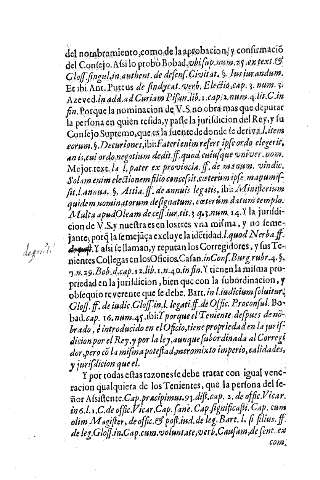 del nombramiento, como de la aprobacion, y confirmació
del Consejo. Assi lo probò Bobad. ubi sup. num. 25. ex text. &
Gloss. singul. in authent. de defens. Civitat. §. Ius jurandum.
Et ibi Ant. Puteus de sindycat. verb. Electio, cap. 3. num. 3.
Azeved. in add. ad Curiam Pisan. lib. 1. cap. 2. num. 4. lit. C. in
fin. Porque la nominacion de V.S. no obra mas que deputar
la persona en quien resida, y passe la jurisdicion del Rey, y su
Consejo Supremo, que es la fuente de donde se deriva. l. item
eorum. §. Decuriones, ibi: Fateri enim refert ipse ordo elegerit,
an is, cui ordo negotium dedit. ff. quod cuiusque univers. nom.
Mejor text. la l. pater ex provincia. ff. de manum. vindic.
Solam enim electionem filio concessit, cæterum ipse manumis-
sit, l. anna. §. Attia. ff. de annuis legatis, ibi: Ministerium
quidem nominatorum designatum, cæterum datum templo.
Malta apud Oleam de cess. iur. tit. 3. q. 3. num. 14. Y la jurisdi-
cion de V.S. y nuestra es en los tres vna misma, y no seme-
jante, porq̃ la semejãça excluye la idẽtidad. l. quod Nerba. ff.
deposit. Y assi se llaman, y reputan los Corregidores, y sus Te-
nientes Collegas en los Oficios. Casan. in Cons. Burg. rubr. 4. §.
7. n. 29. Bobad. cap. 12. lib. 1. n. 40. in fin. Y tienen la misma pro-
priedad en la jurisdicion, bien que con la subordinacion, y
obsequio reverente que se debe. Bart. in l. iudicium soluitur,
Gloss. ff. de iudic. Gloss. in l. legati. ff. de Offic. Proconsul. Bo-
bad. cap. 16. num. 45. ibi: Y porque el Teniente despues de nõ-
brado, è introducido en el Oficio, tiene propriedad en la juris-
dicion por el Rey, y por la ley, aunque subordinada al Corregi-
dor, pero cõ la misma potestad, mero mixto imperio, calidades,
y jurisdicion que el.
Y por todas estas razones se debe tratar con igual vene-
racion qualquiera de los Tenientes, que la persona del se-
ñor Assistente. Cap. præcipimus. 93. dist. cap. 2. de offic. Vicar.
in 6. l. 1. C. de offic. Vicar. Cap. sanè. Cap. significasti. Cap. cum
olim Magister, de offic. & pot. iud. de leg. Bart. l. si filius. ff.
de leg. Gloss. in Cap. cum voluntate, verb. Causam, de sent. ex
com.